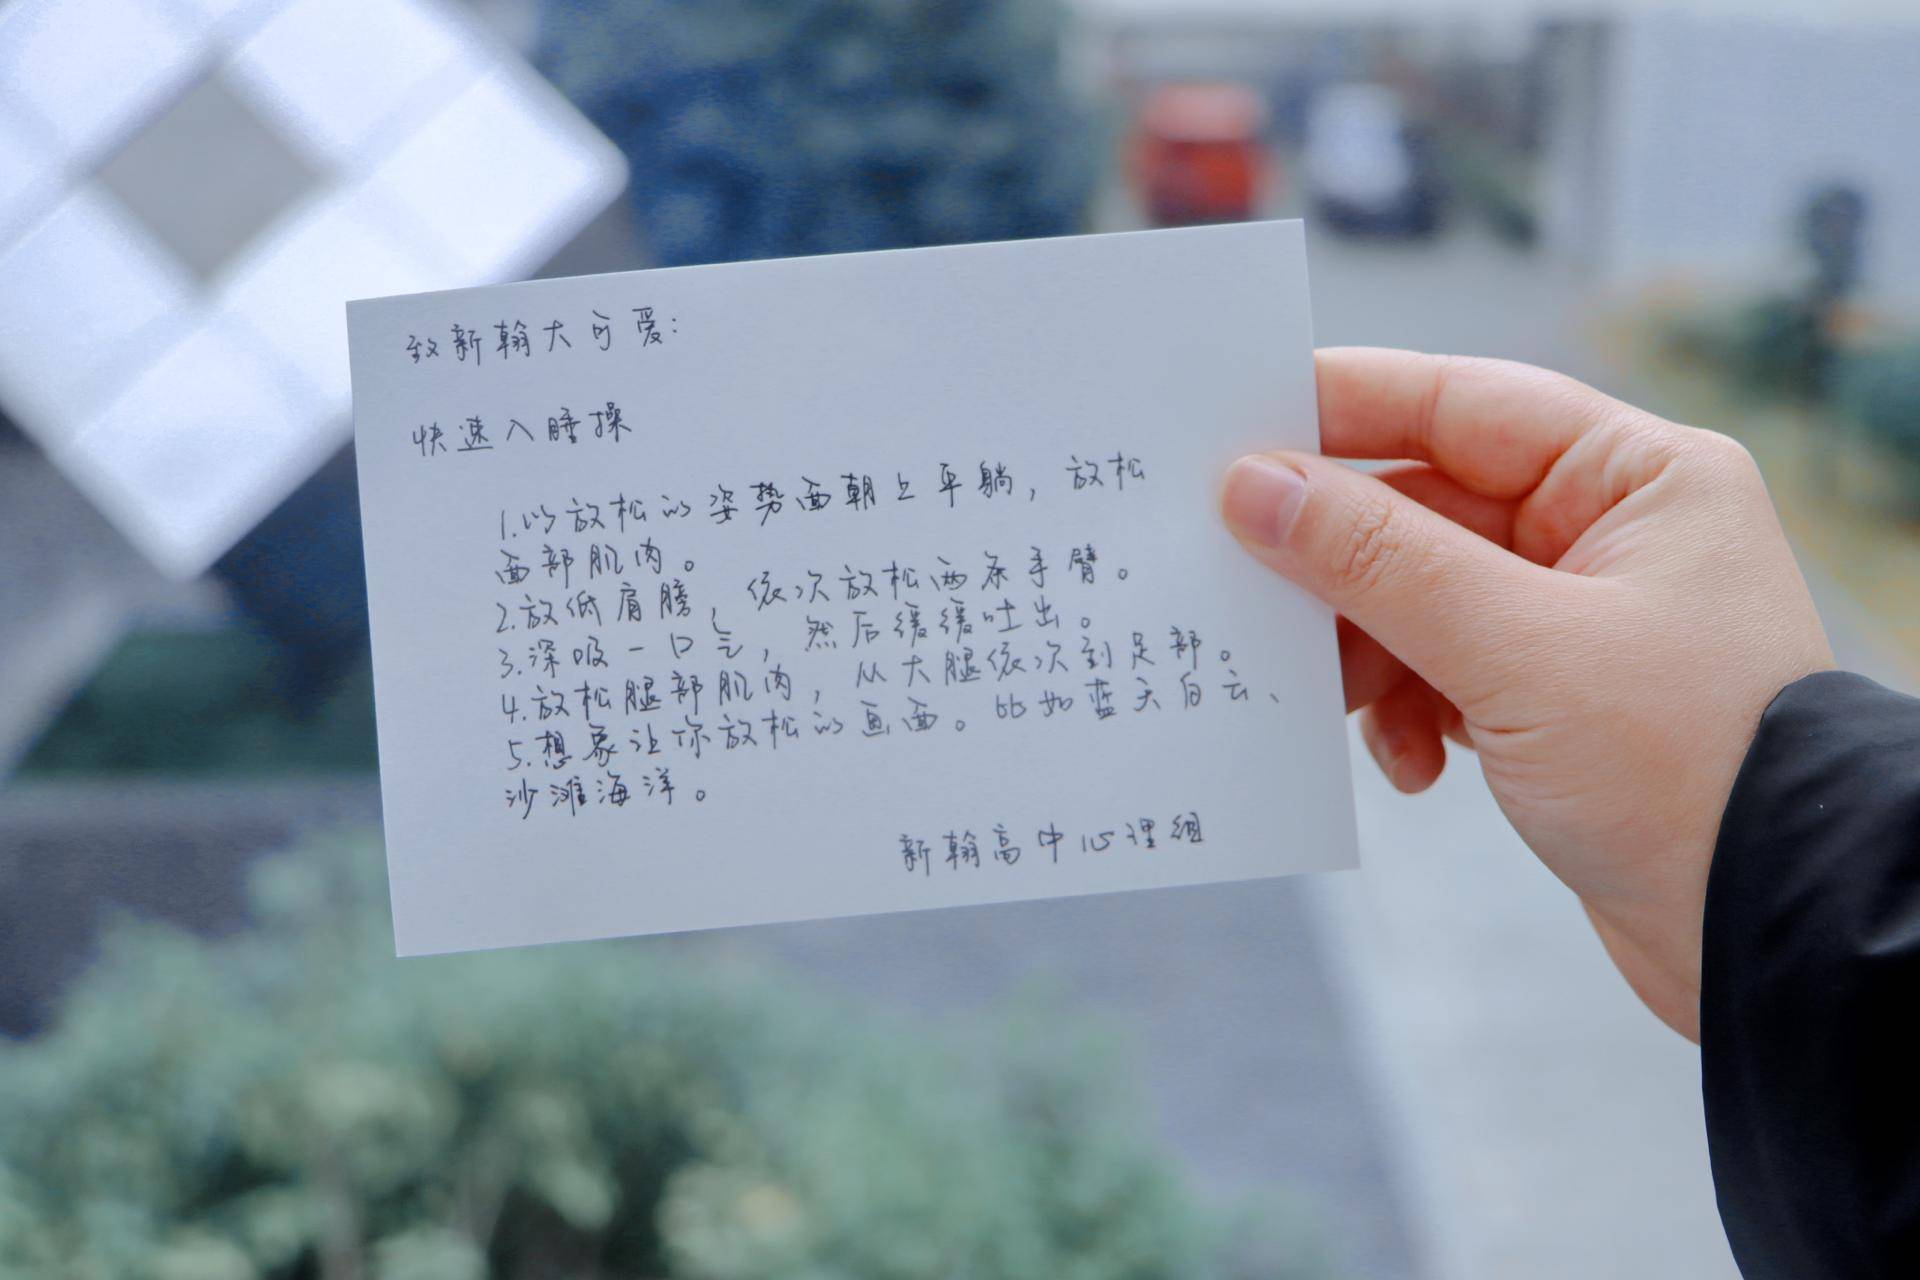 致新翰大可爱：
快速入睡操
1.以放松的姿势面朝上平躺，放松
面部肌肉。
2.放低肩膀，依次放松两条手臂。
3.深吸一口气，然后缓缓吐出。
4.放松腿部肌肉，从大腿依次到足部。
5.想象让你放松的画面。比如蓝天白云、
沙滩海洋。
新翰高中心理组